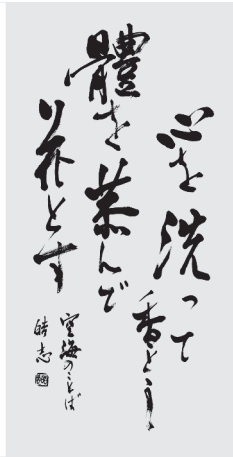 心を洗って香とし
體を恭んで
花とす
空海のことば
皓志